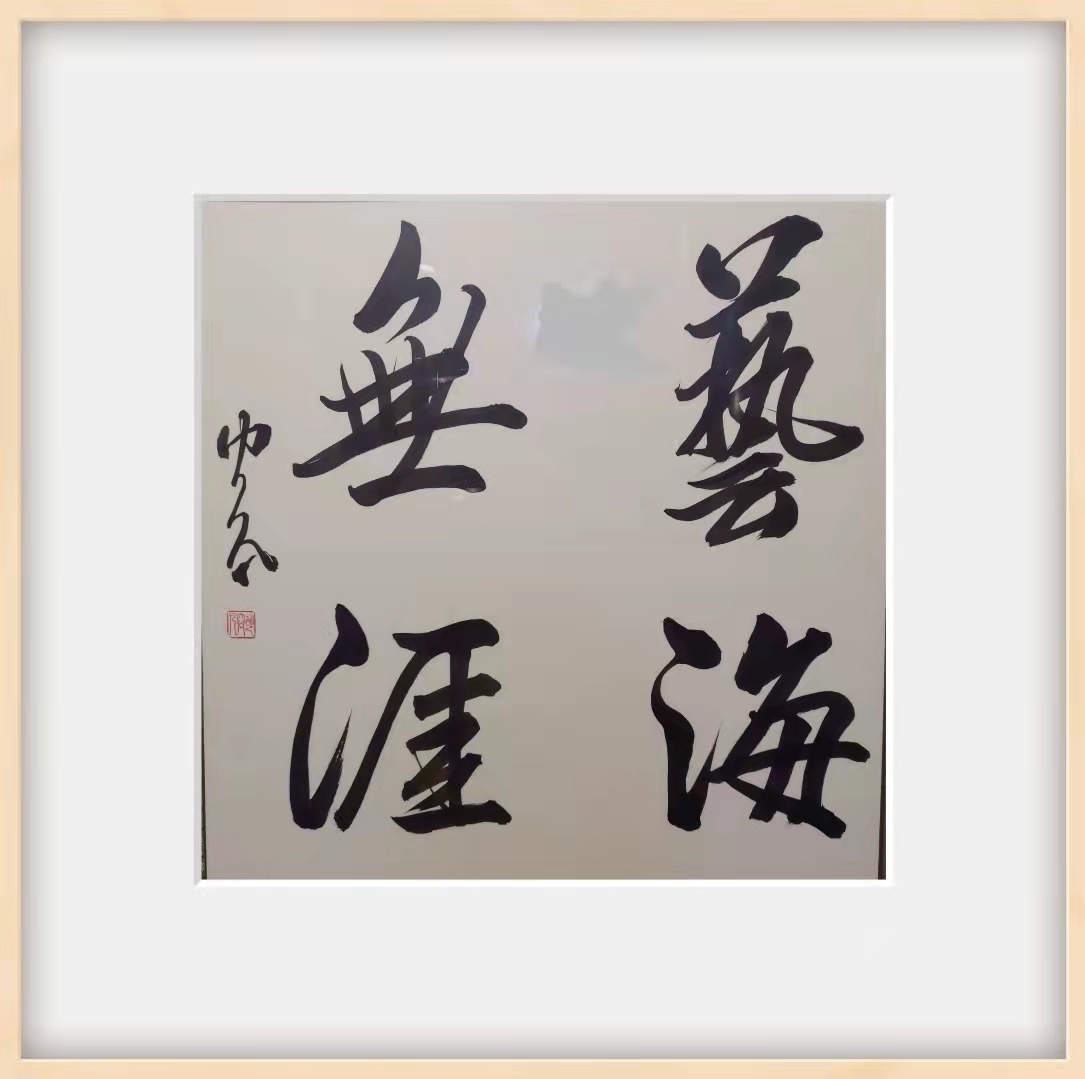 藝海
無涯